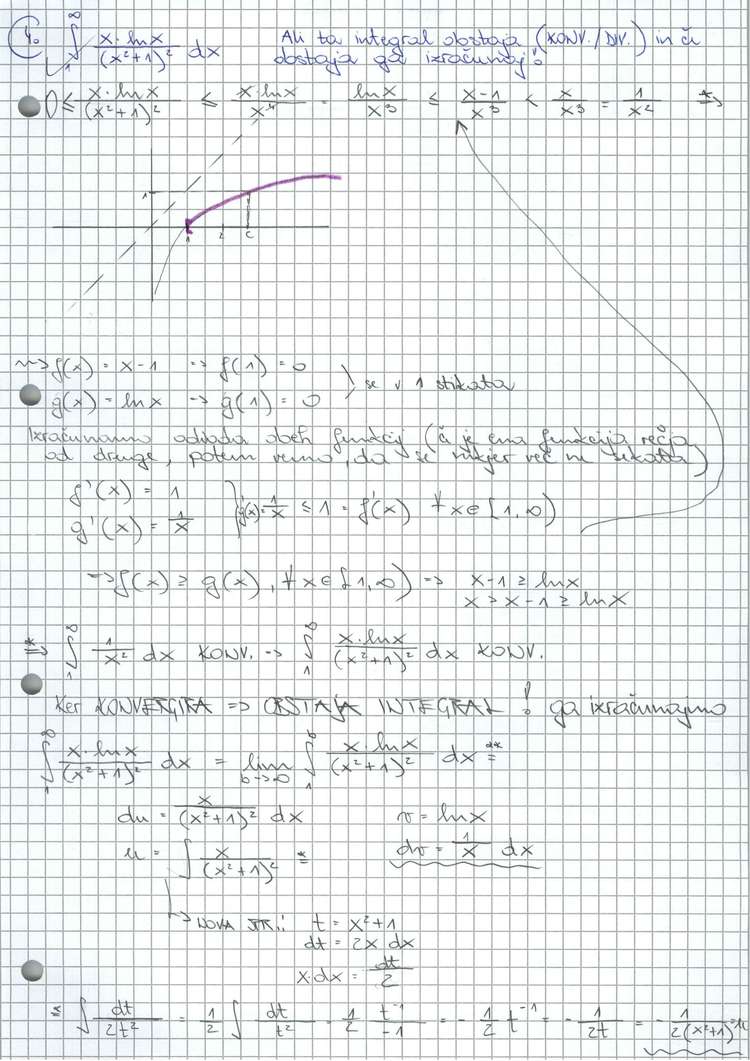 4. ∫₁^∞ x·lnx/(x²+1)² dx Ali ta integral obstaja (KONV./DIV.) in či
obstaja ga izračunaj!
0 ≤ x·lnx/(x²+1)² ≤ x·lnx/x⁴ = lnx/x³ ≤ x-1/x³ < x/x³ = 1/x² *⇒
1
1 2 e
~> f(x) = x-1 => f(1) = 0
g(x) = lnx -> g(1) = 0 } se v 1 stikata
Izračunamo odvoda obeh funkcij (či je ena funkcija večja
od druge, potem vemo, da se nikjer več ne stikata)
f'(x) = 1
g'(x) = 1/x } g'(x) = 1/x ≤ 1 = f'(x) ∀x∈[1,∞)
=> f(x) ≥ g(x), ∀x∈[1,∞) => x-1 ≥ lnx
x > x-1 ≥ lnx
*⇒ ∫₁^∞ 1/x² dx KONV. -> ∫₁^∞ x·lnx/(x²+1)² dx KONV.
Ker KONVERGIRA => OBSTAJA INTEGRAL! ga izračunajmo
∫₁^∞ x·lnx/(x²+1)² dx = lim b->∞ ∫₁^b x·lnx/(x²+1)² dx **=
du = x/(x²+1)² dx v = lnx
u = ∫ x/(x²+1)² *= dv = 1/x dx
-> NOVA SPR.: t = x²+1
dt = 2x dx
x·dx = dt/2
*= ∫ dt/2t² = 1/2 ∫ dt/t² = 1/2 t⁻¹/-1 = - 1/2 t⁻¹ = - 1/2t = - 1/2(x²+1) = u